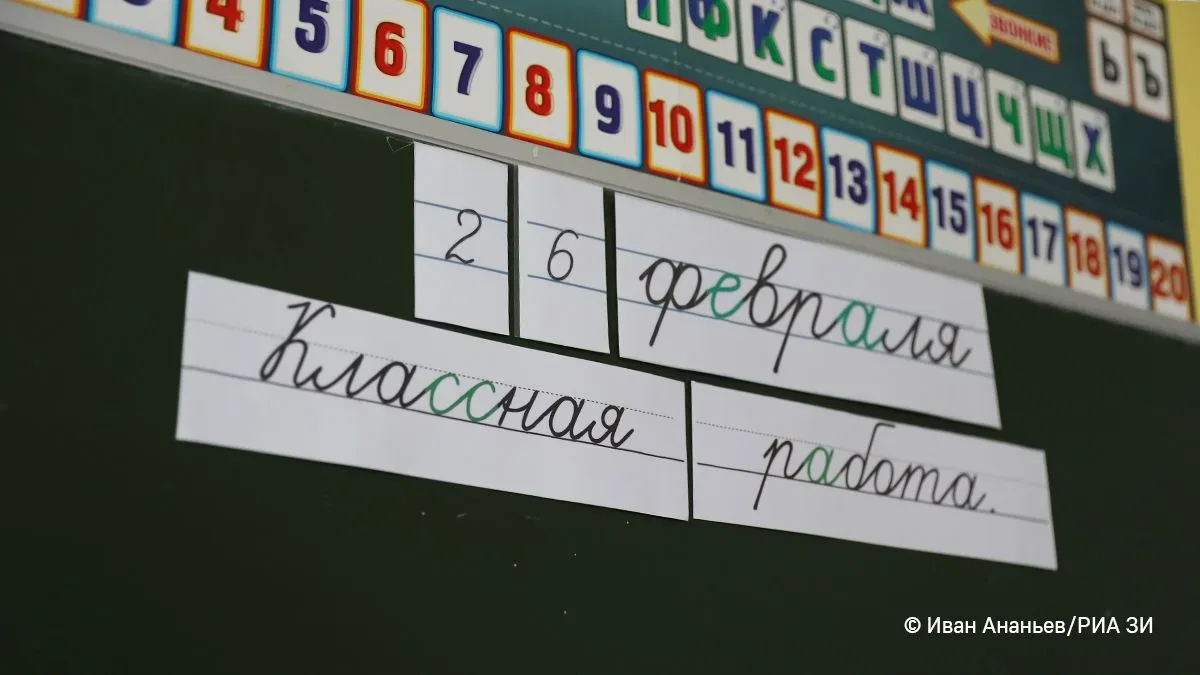 П Ф К С Т Ш Ц Ч Щ Х
ЗВОНКИЕ
Ь Ъ
4 5 6 7 8 9 10 11 12 13 14 15 16 17 18 19 20
26 февраля
Классная работа.
© Иван Ананьев/РИА ЗИ